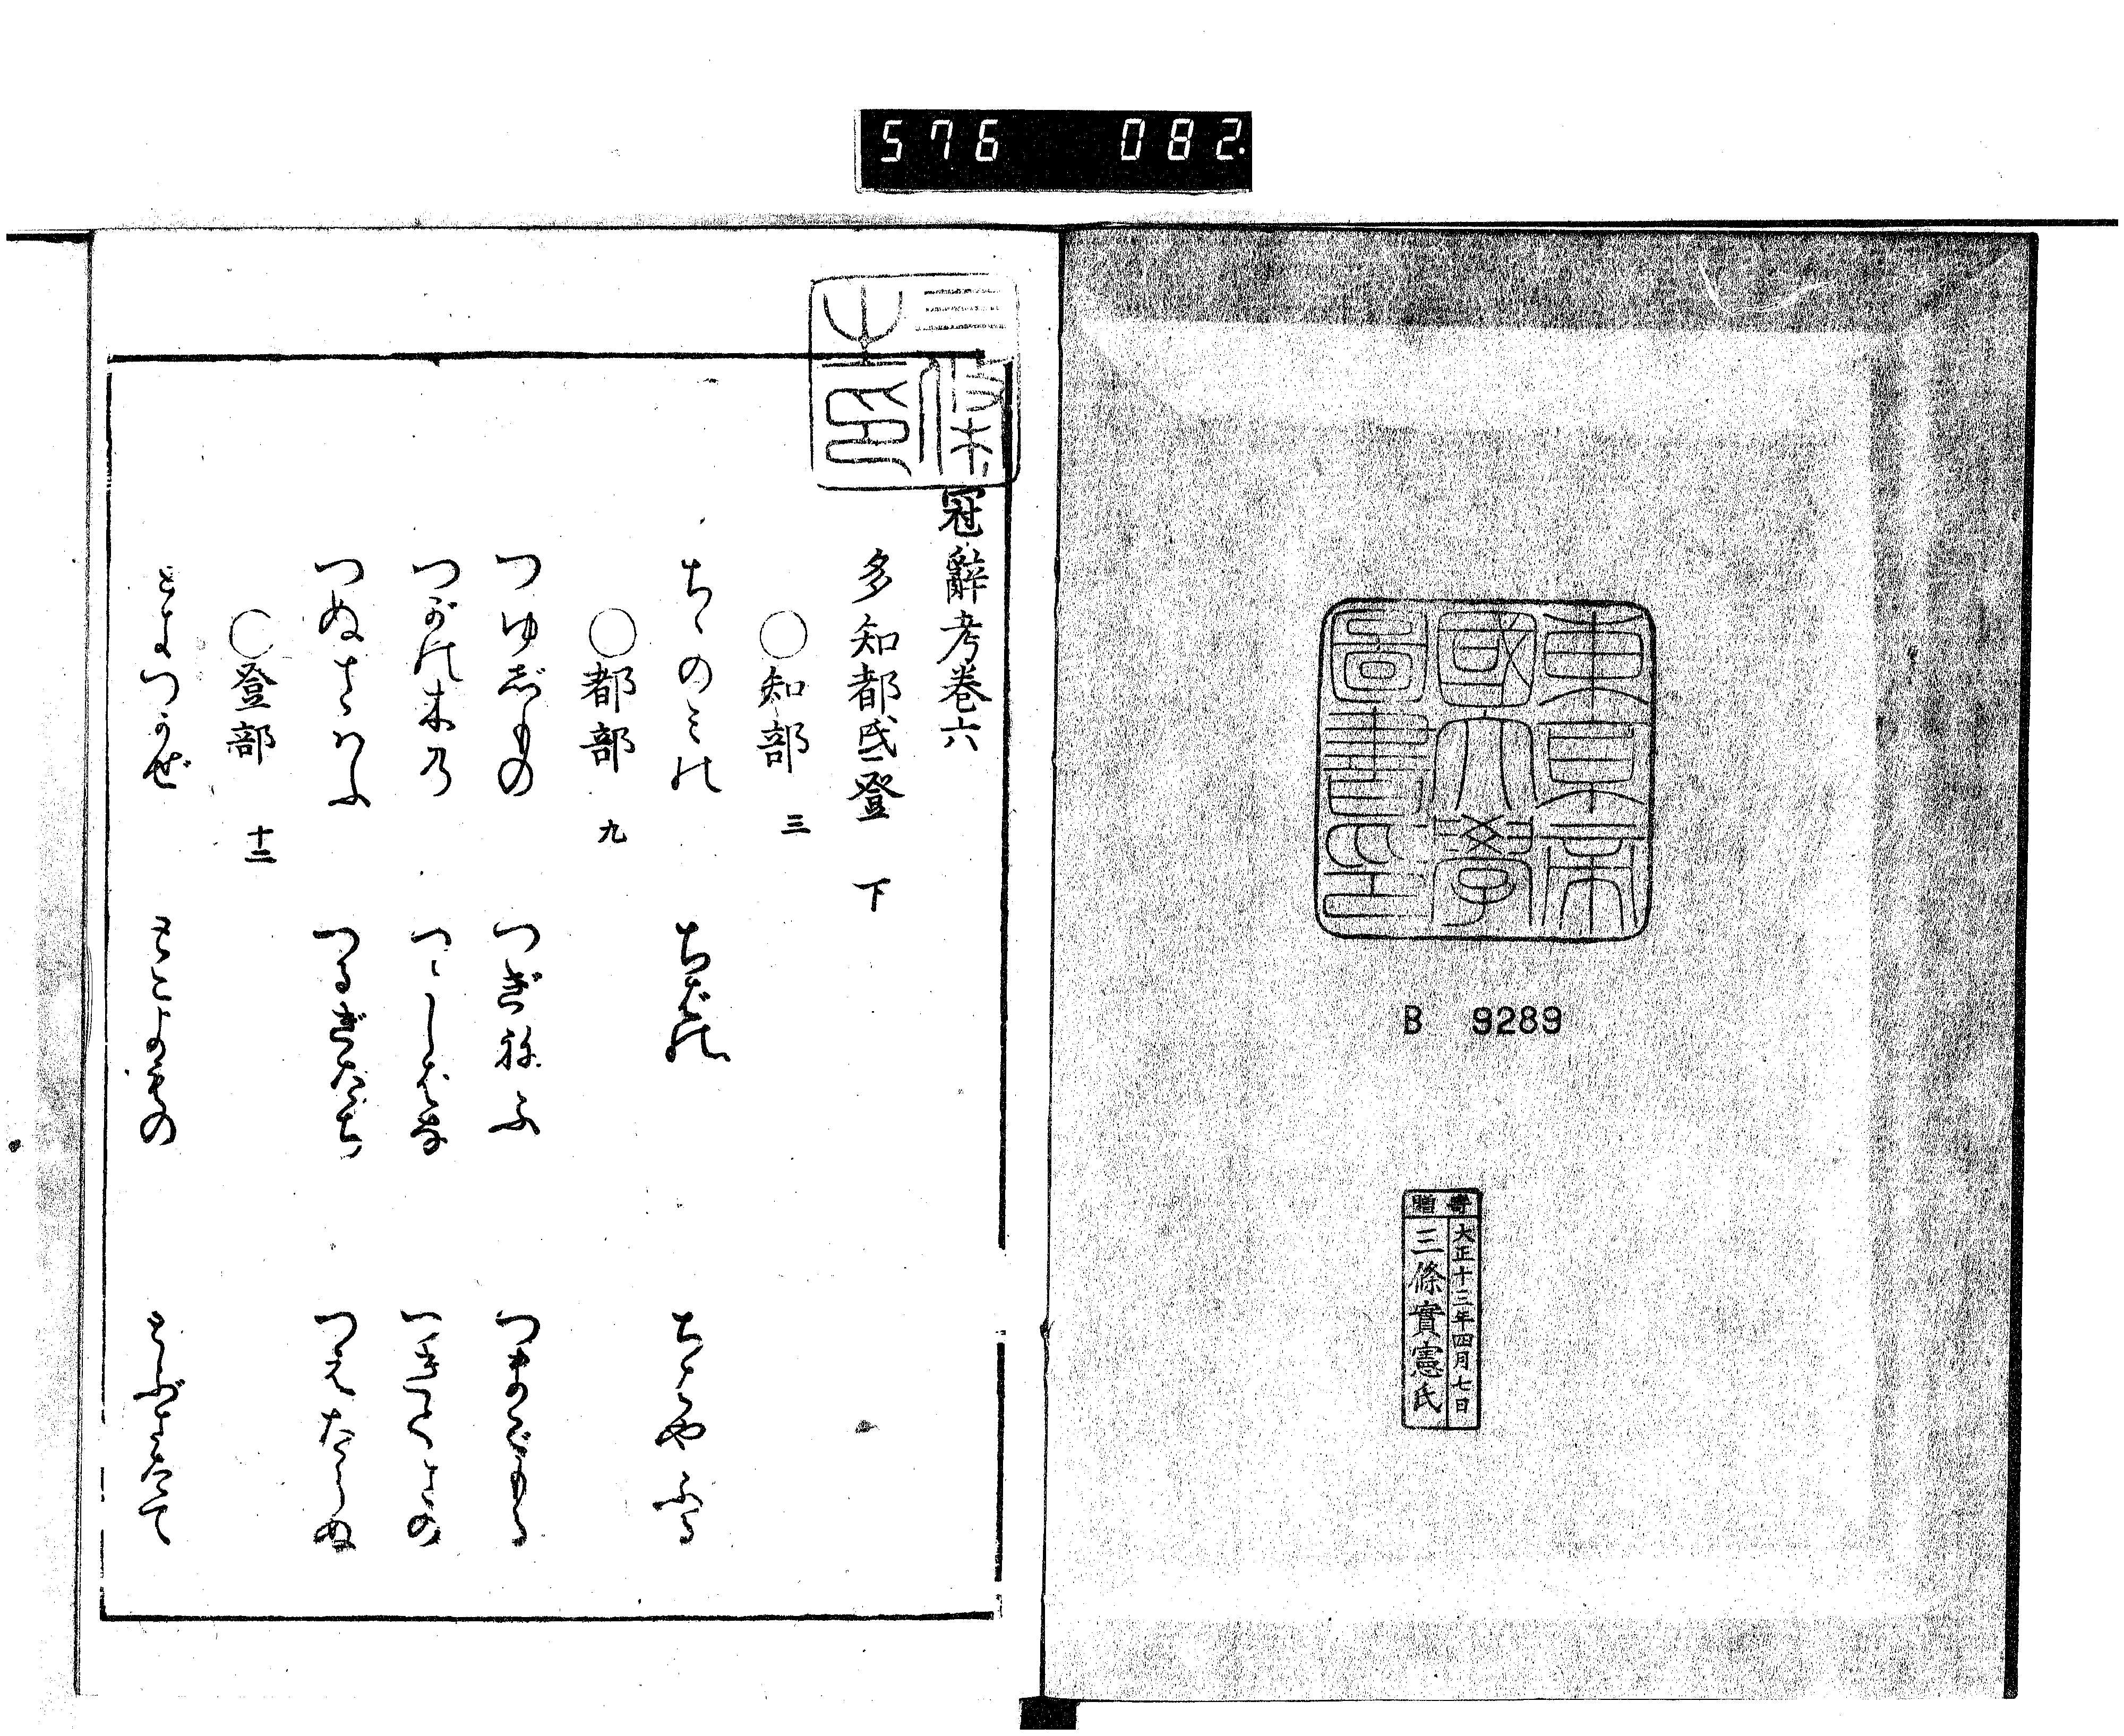 576 082.
東京帝
國大學
圖書印
B 9289
寄贈
大正十三年四月七日
三條實憲氏
三條
之印
冠辭考卷六
多知都氐登 下
〇知部 三
ちゝのみの ちばの ちはやふる
〇都部 九
つゆじもの つぎねふ つまごもる
つがの木乃 つゝじばな つきくさの
つぬさはふ つるぎたち つえたらぬ
〇登部 十二
ときつかぜ とこよもの とぶさたて